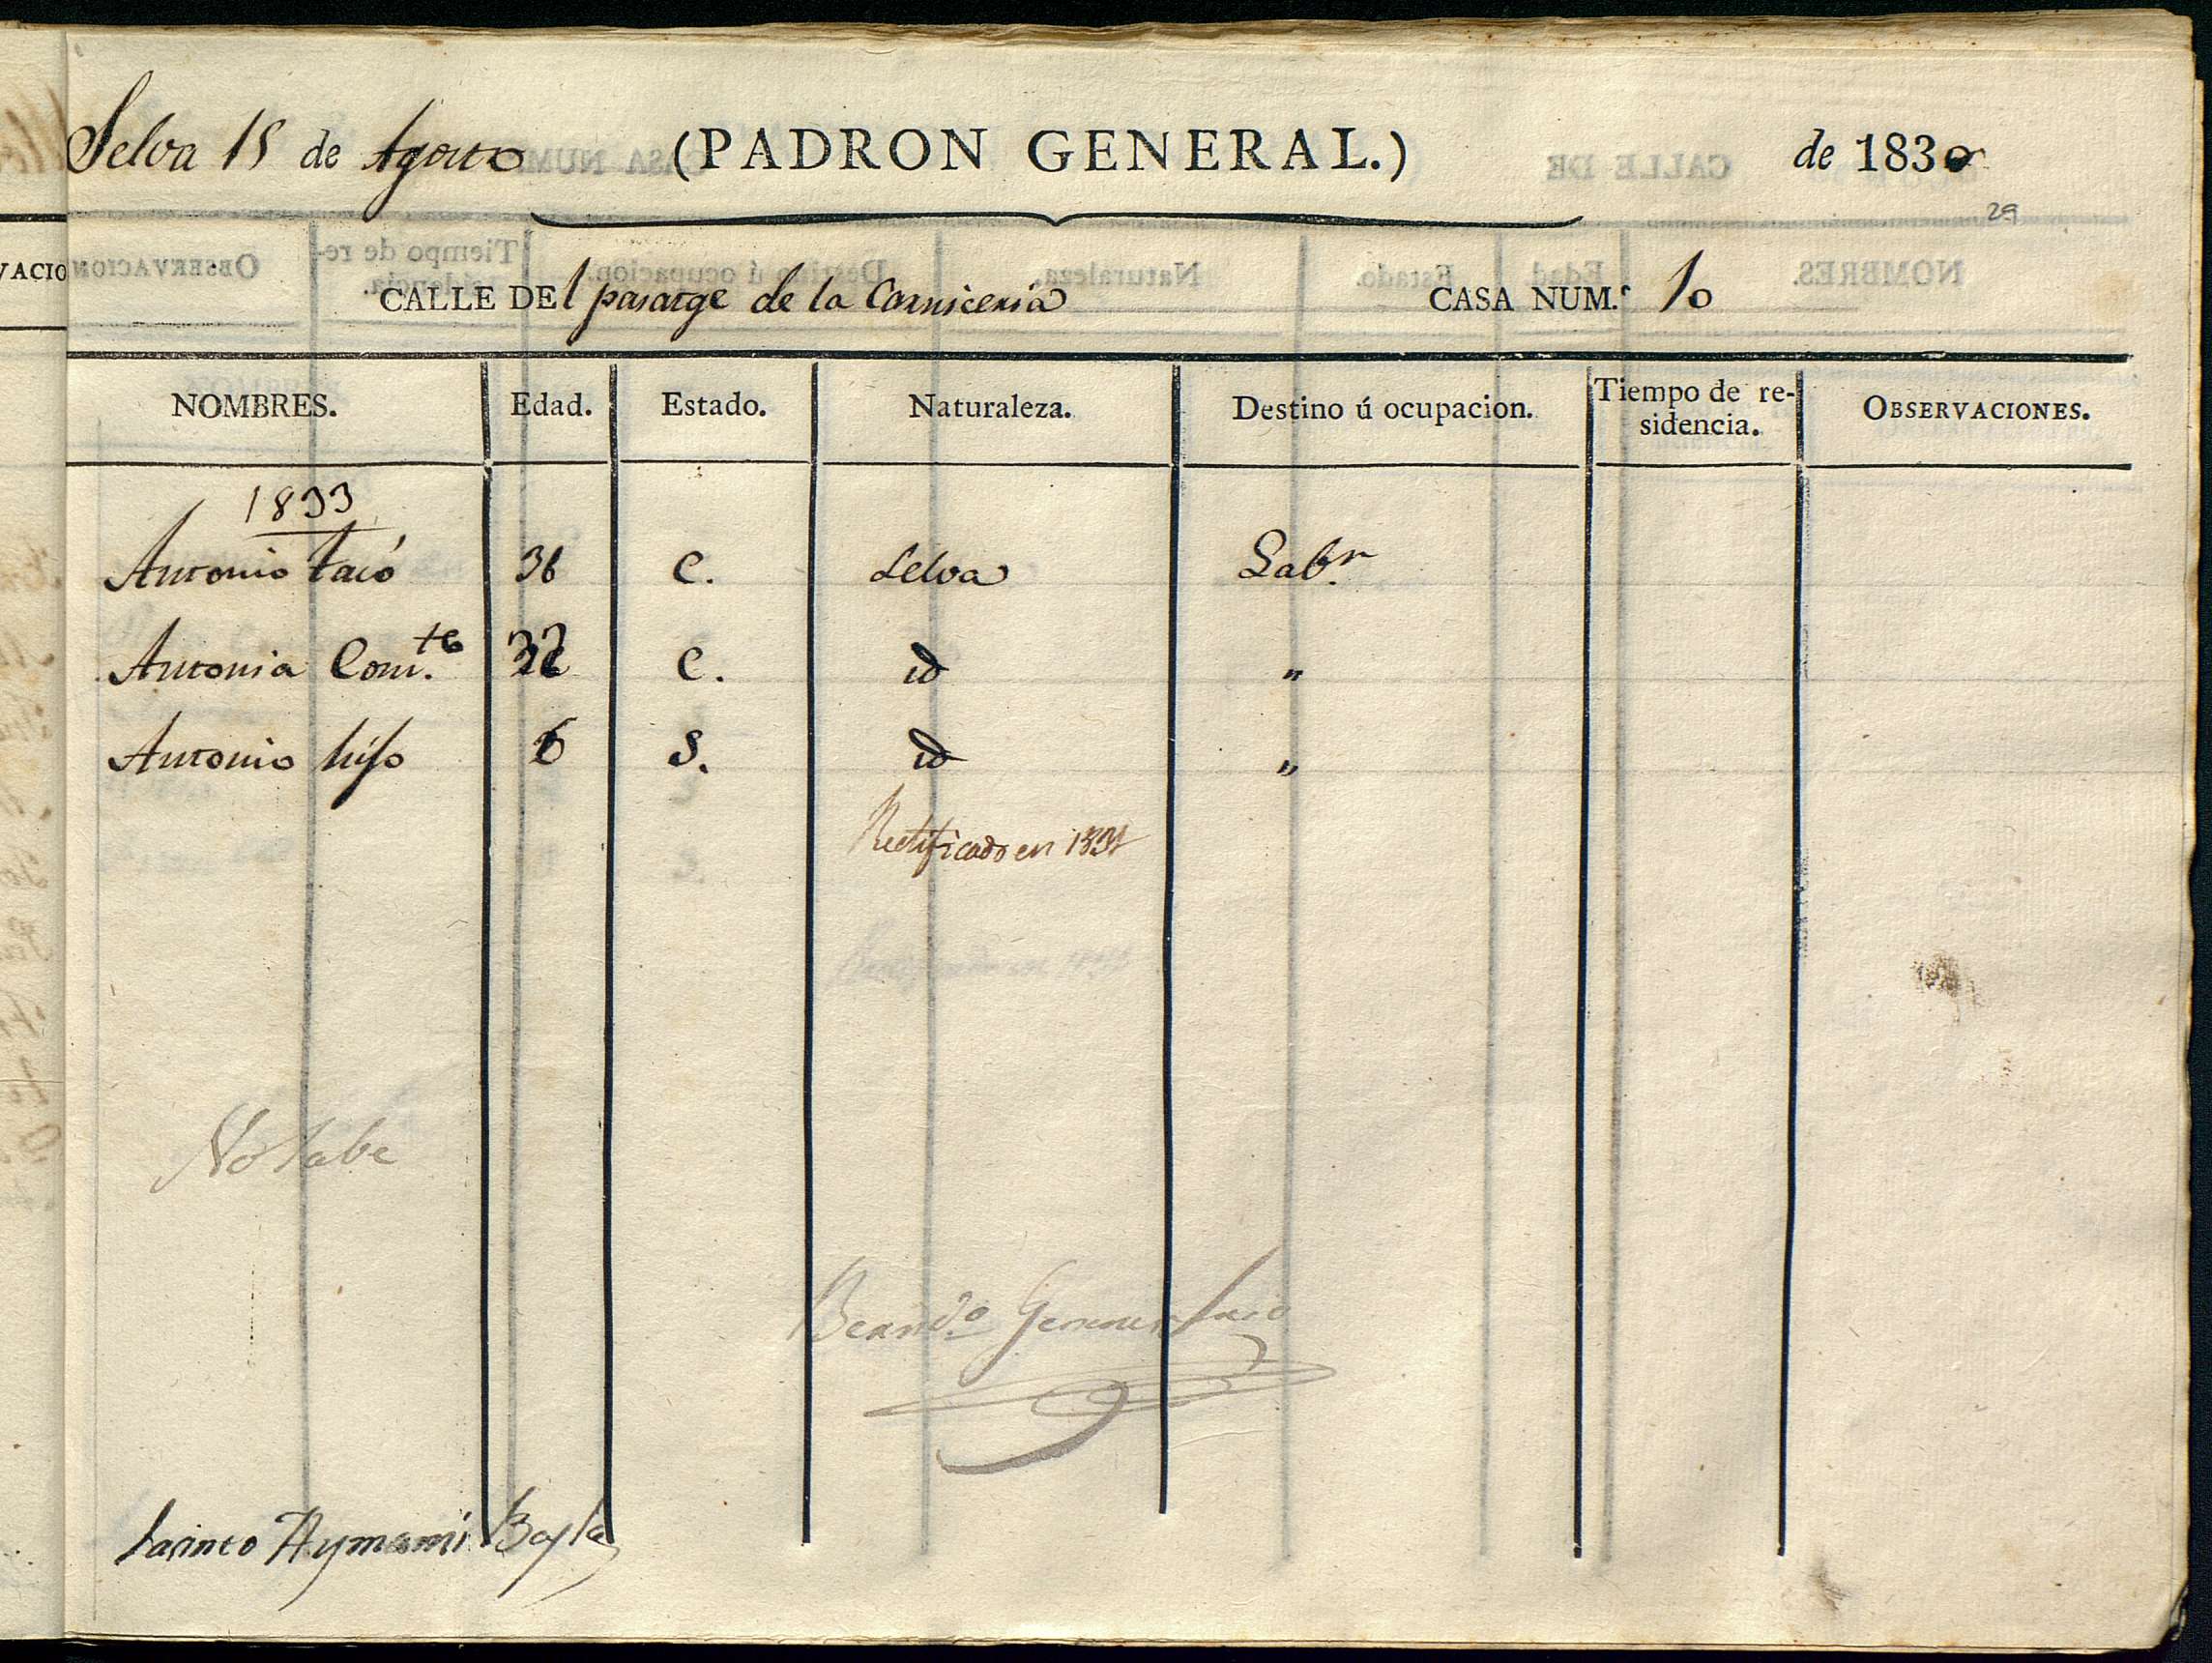 Selva 15 de Agosto (PADRON GENERAL.) de 1830
29
CALLE DEl pasatge de la Carniceria CASA NUM.º 10
NOMBRES. Edad. Estado. Naturaleza. Destino ú ocupacion. Tiempo de re-
sidencia. OBSERVACIONES.
1833
Antonio 36 C. Selva Labr.
Antonia Con.te C. id "
Antonio hijo 6 S. id "
Rectificado en 1831
No sabe
Jacinto Aymami Bayle